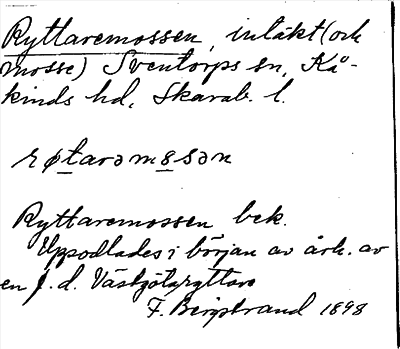 Ryttaremossen, intäkt (och
mosse) Sventorps sn, Kå-
kinds hd, Skarab. l.
røtarəmɵsən
Ryttaremossen bek.
Uppodlades i början av årh. av
en f. d. Västgötaryttare
F. Bergstrand 1898